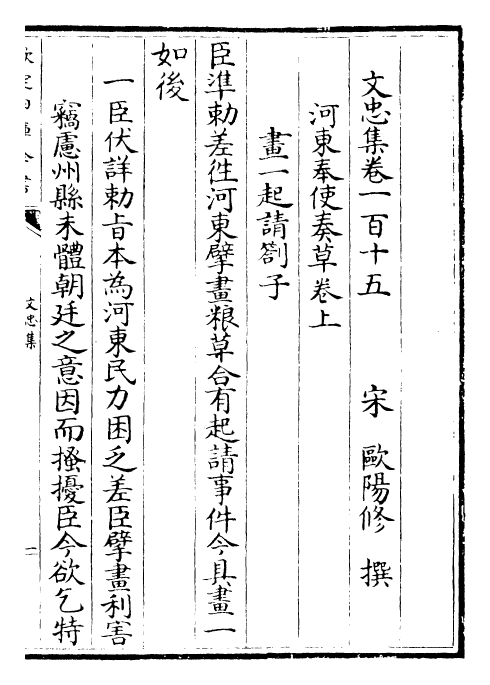 文忠集卷一百十五　宋　歐陽修　撰
河東奉使奏草卷上
畫一起請劄子
臣準勅差往河東擘畫粮草合有起請事件今具畫一
如後
一臣伏詳勅旨本為河東民力困乏差臣擘畫利害
竊慮州縣未體朝廷之意因而搔擾臣今欲乞特
文忠集
一